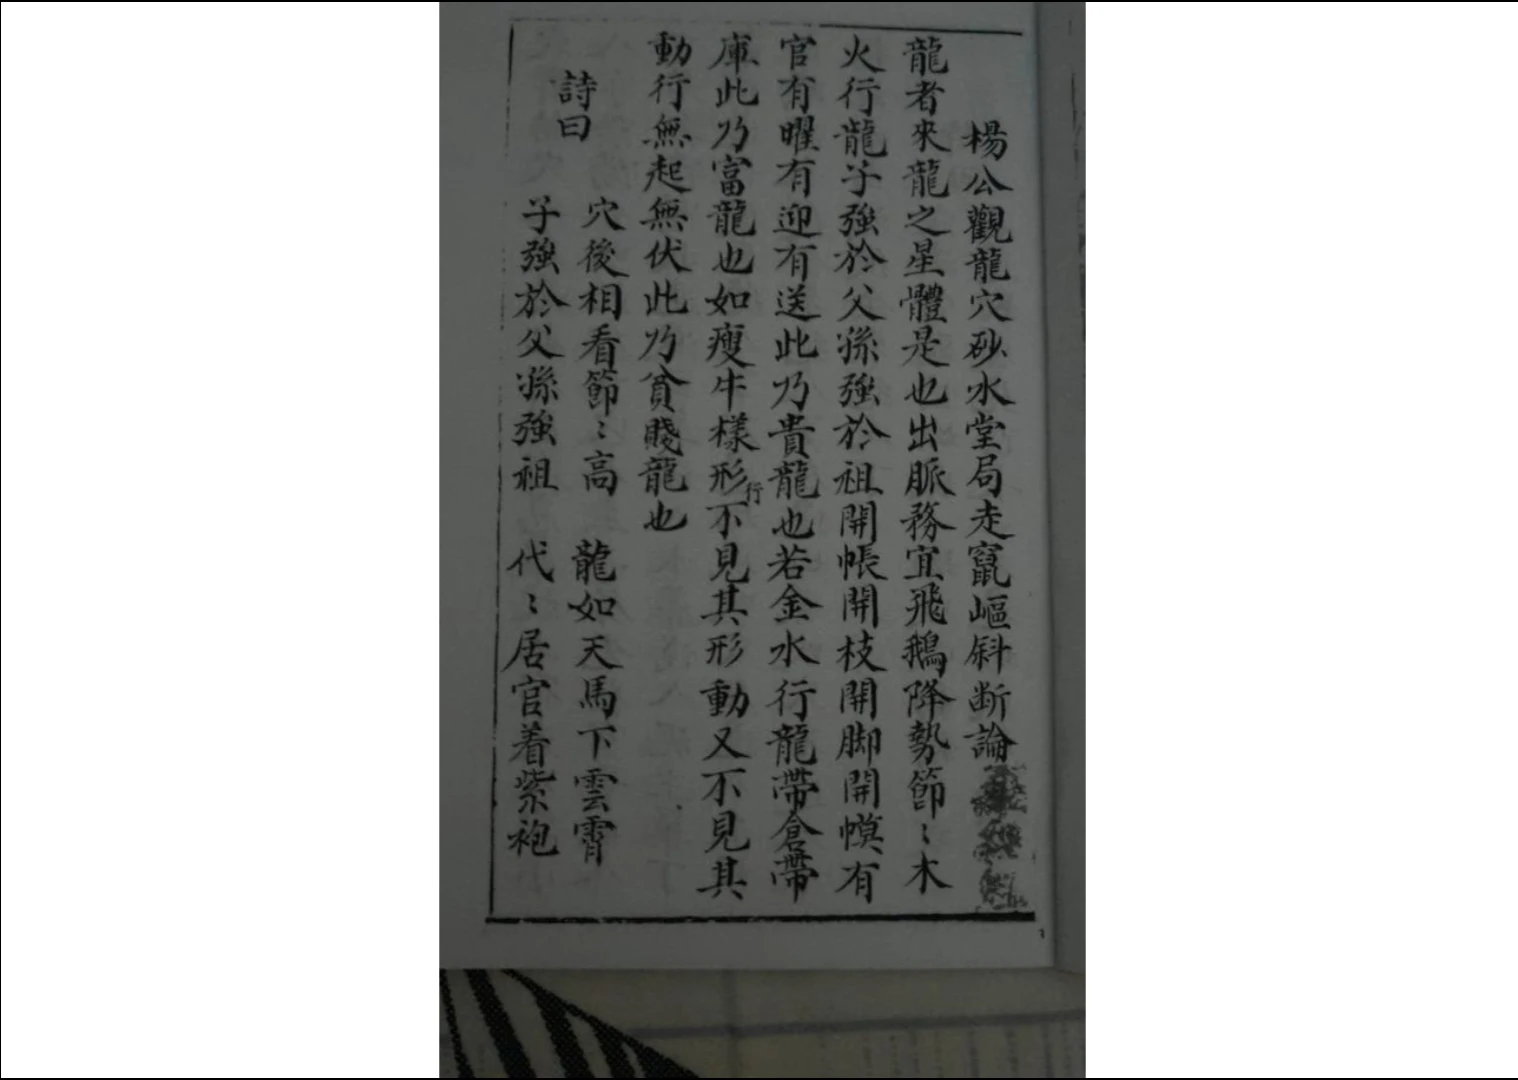 楊公觀龍穴砂水堂局走竄嶇斜断論
龍者來龍之星體是也出脈務宜飛鵝降勢節〻木
火行龍子強於父孫強於祖開帳開枝開脚開幙有
官有曜有迎有送此乃貴龍也若金水行龍帶倉帶
庫此乃富龍也如瘦牛樣形不見其形動又不見其
行
動行無起無伏此乃貧賤龍也
詩曰
穴後相看節〻高 龍如天馬下雲霄
子強於父孫強祖 代〻居官着紫袍